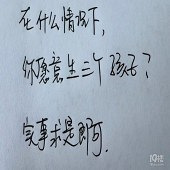 在什么情况下,
你愿意生三个孩子?
实事求是即可.